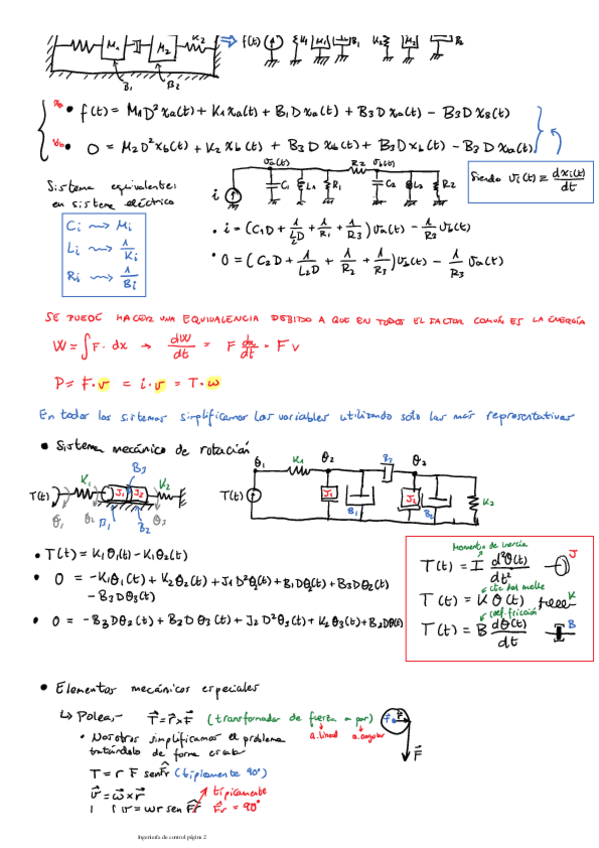 M₁ M₂ K₂ ⇒ f(t) K₁ M₁ B₁ K₂ M₂ B₂
B₁ B₂
• f(t) = M₁D²xa(t) + K₁xa(t) + B₁Dxa(t) + B₃Dxa(t) − B₃Dx₃(t)
• 0 = M₂D²xb(t) + K₂xb(t) + B₃Dxb(t) + B₃Dxb(t) − B₃Dxa(t)
Sistema equivalente:
en sistema eléctrico
va(t) R₂ vb(t)
i C₁ L₁ R₁ C₂ L₂ R₂
Siendo vi(t) = dxi(t)/dt
Ci ⟿ Mi
Li ⟿ 1/Ki
Ri ⟿ 1/Bi
• i = (C₁D + 1/L₁D + 1/R₁ + 1/R₃) va(t) − 1/R₃ vb(t)
• 0 = (C₂D + 1/L₂D + 1/R₂ + 1/R₃) vb(t) − 1/R₃ va(t)
SE PUEDE HACER UNA EQUIVALENCIA DEBIDO A QUE EN TODOS EL FACTOR COMÚN ES LA ENERGÍA
W = ∫F·dx → dW/dt = F dx/dt = F v
P = F·v = i·v = T·ω
En todos los sistemas simplificamos las variables utilizando solo las más representativas
• Sistema mecánico de rotación
B₃
T(t) K₁ J₁ J₂ K₂
θ₁ θ₂ B₁ B₂ θ₃
θ₁ K₁ θ₂ B₂ θ₃
T(t) J₁ B₁ J₂ B₂ K₂
• T(t) = K₁θ₁(t) − K₁θ₂(t)
• 0 = −K₁θ₁(t) + K₂θ₂(t) + J₁D²θ₂(t) + B₁Dθ₂(t) + B₃Dθ₂(t)
− B₃Dθ₃(t)
• 0 = −B₃Dθ₂(t) + B₃Dθ₃(t) + J₂D²θ₃(t) + K₂θ₃(t) + B₂Dθ(t)
Momento de inercia
T(t) = I d²θ(t)/dt² J
cte del muelle
T(t) = K θ(t) K
coef. fricción
T(t) = B dθ(t)/dt B
• Elementos mecánicos especiales
↳ Polea,- T = r × F (transformador de fuerza a par) r F
• Nosotros simplificamos el problema a.lineal a.angular
tratándolo de forma escalar F
T = r F sen Fr (típicamente 90°)
v = ω × r típicamente
v = ωr sen Fr Fr = 90°
Ingeniería de control página 2